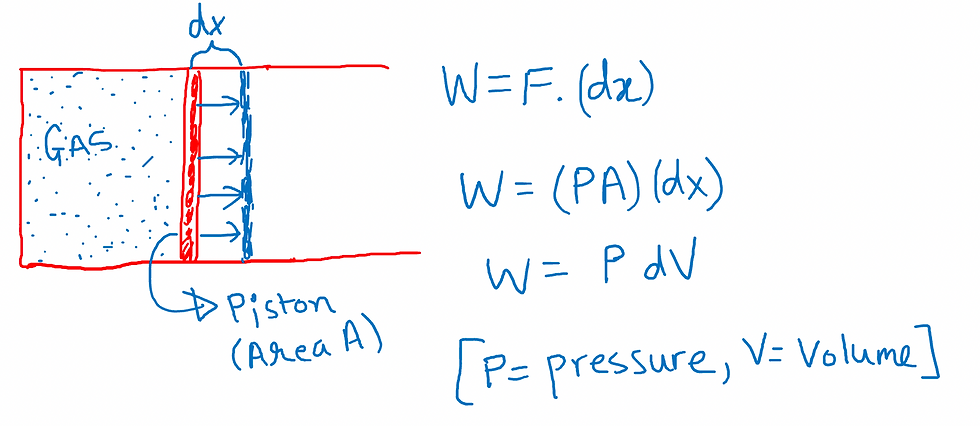 dx
GAS
Piston
(Area A)
W = F. (dx)
W = (PA) (dx)
W = P dV
[P = pressure, V = Volume]